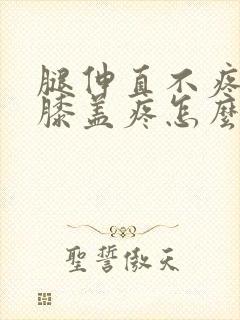 腿伸直不疼
膝盖疼怎麽
聖誓傲天